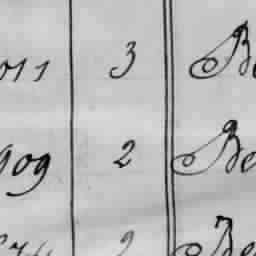 011 3 Be
909 2 Be
2 Be